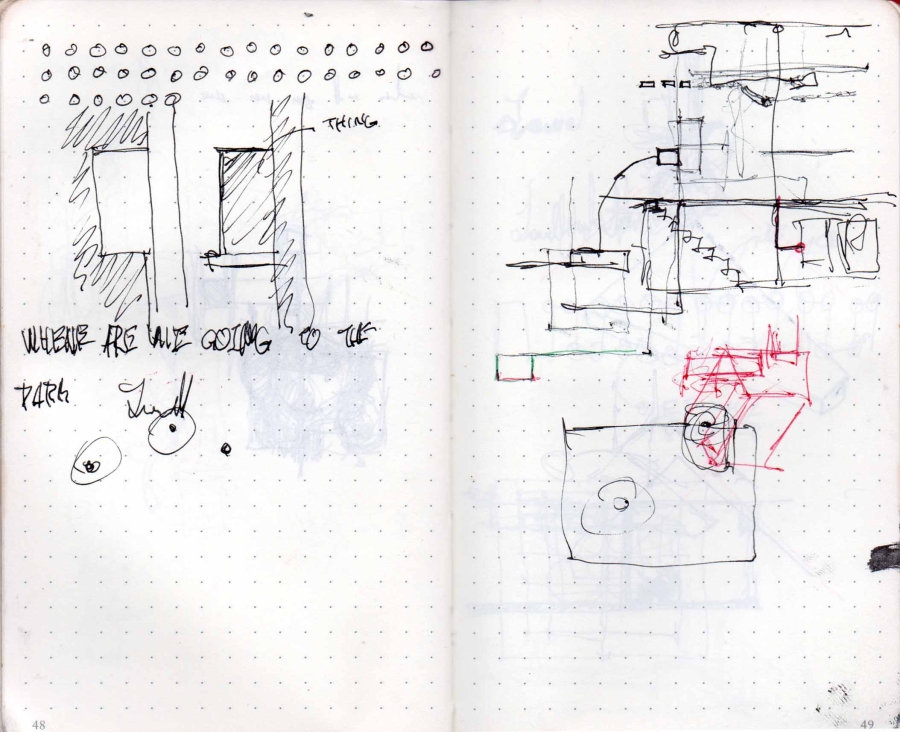 THING
WHENE ARE WE GOING TO THE
PARK
48
49